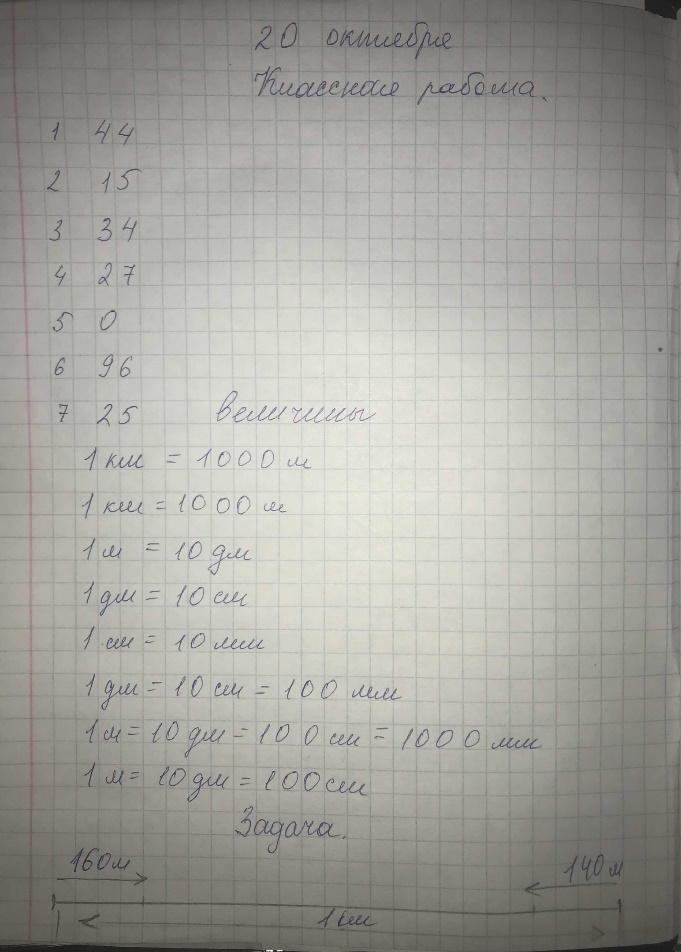 20 октября
Классная работа.
1 44
2 15
3 34
4 27
5 0
6 96
7 25 величины
1 км = 1000 м
1 км = 1000 м
1 м = 10 дм
1 дм = 10 см
1 см = 10 мм
1 дм = 10 см = 100 мм
1 м = 10 дм = 100 см = 1000 мм
1 м = 10 дм = 100 см
Задача.
160 м 140 м
1 км